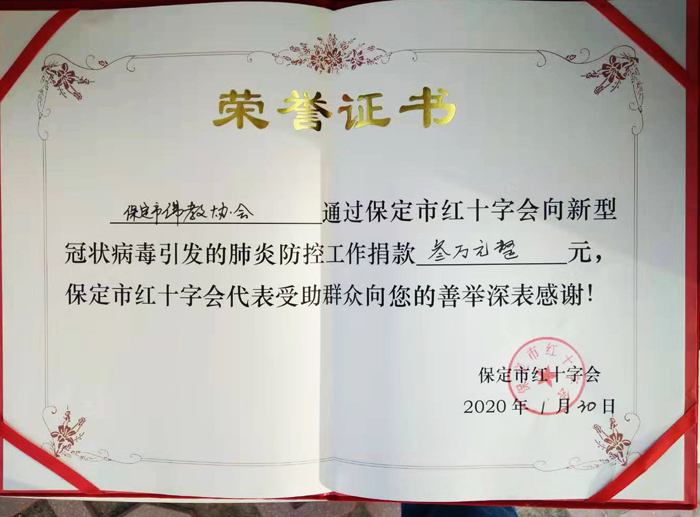 荣誉证书
保定市佛教协会通过保定市红十字会向新型
冠状病毒引发的肺炎防控工作捐款叁万元整元，
保定市红十字会代表受助群众向您的善举深表感谢！
保定市红十字会
保定市红十字会
2020年1月30日